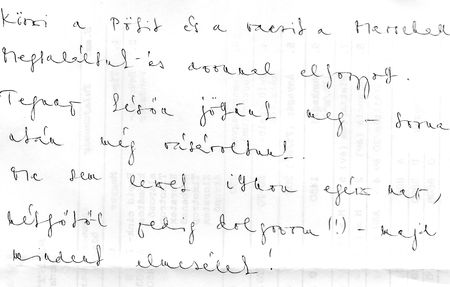 Köszi a Pötit és a vacsit a
megtaláltuk és azonnal elfogyott.
Tegnap késön jöttünk meg – sorna
után még vásároltunk.
Ma sem leszek itthon egész nap,
hétfőtől pedig dolgozom (!!) – majd
mindent elmesélek!